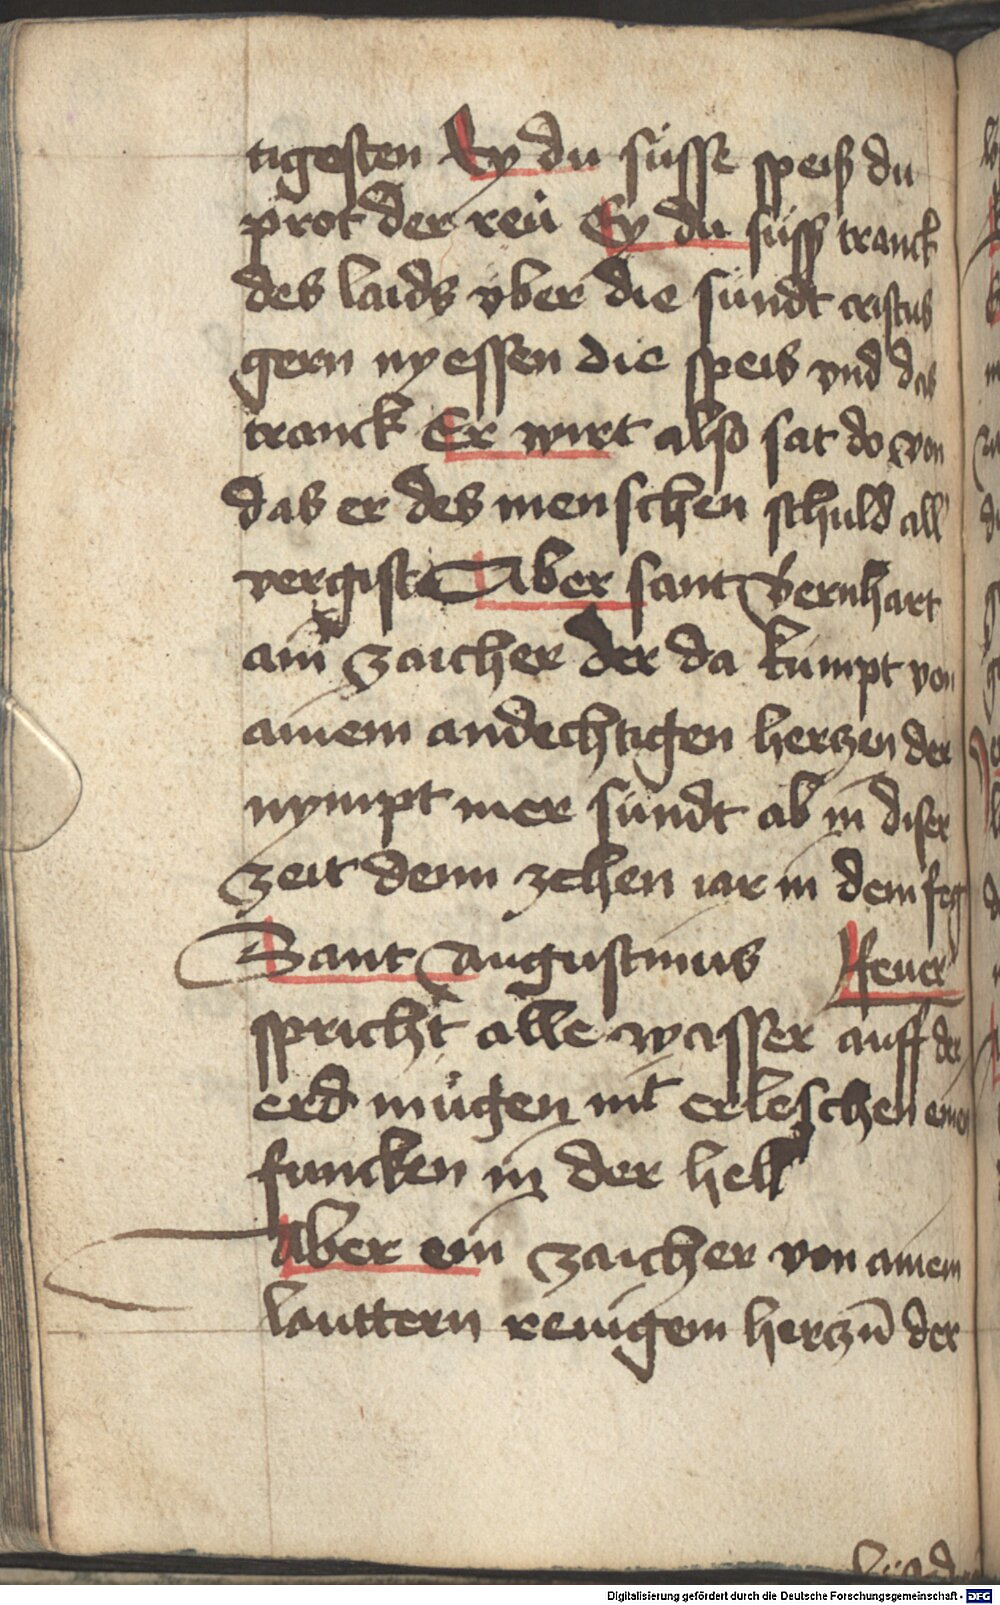 tigesten Ey du süsse speiß du
prot der reü Ey du süsß tranck
des laids vber die sündt cristus
gern nyessen die speis vnd das
tranck Er wirt also sat do von
das er des menschen schuld all
vergist Aber sant Bernhart
ain zaicher der da kumpt von
ainem andechtigen herczen der
nympt mer sündt ab in diser
zeit denn zehen iar in dem feg
Sant Augustinus ffeuer
spricht alle wasser auff der
erd mügen nit erleschen einen
funcken in der hell
Aber ein zaicher von ainem
lauttern reuigem herczn̄ der
Digitalisierung gefördert durch die Deutsche Forschungsgemeinschaft - DFG